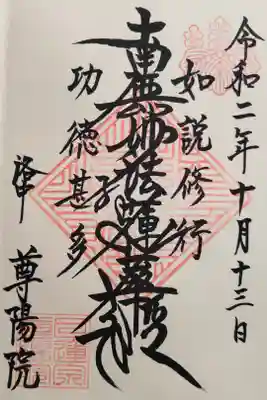 令和二年十月十三日
如説修行
南無妙法蓮華経
功徳甚多
洛中
尊陽院